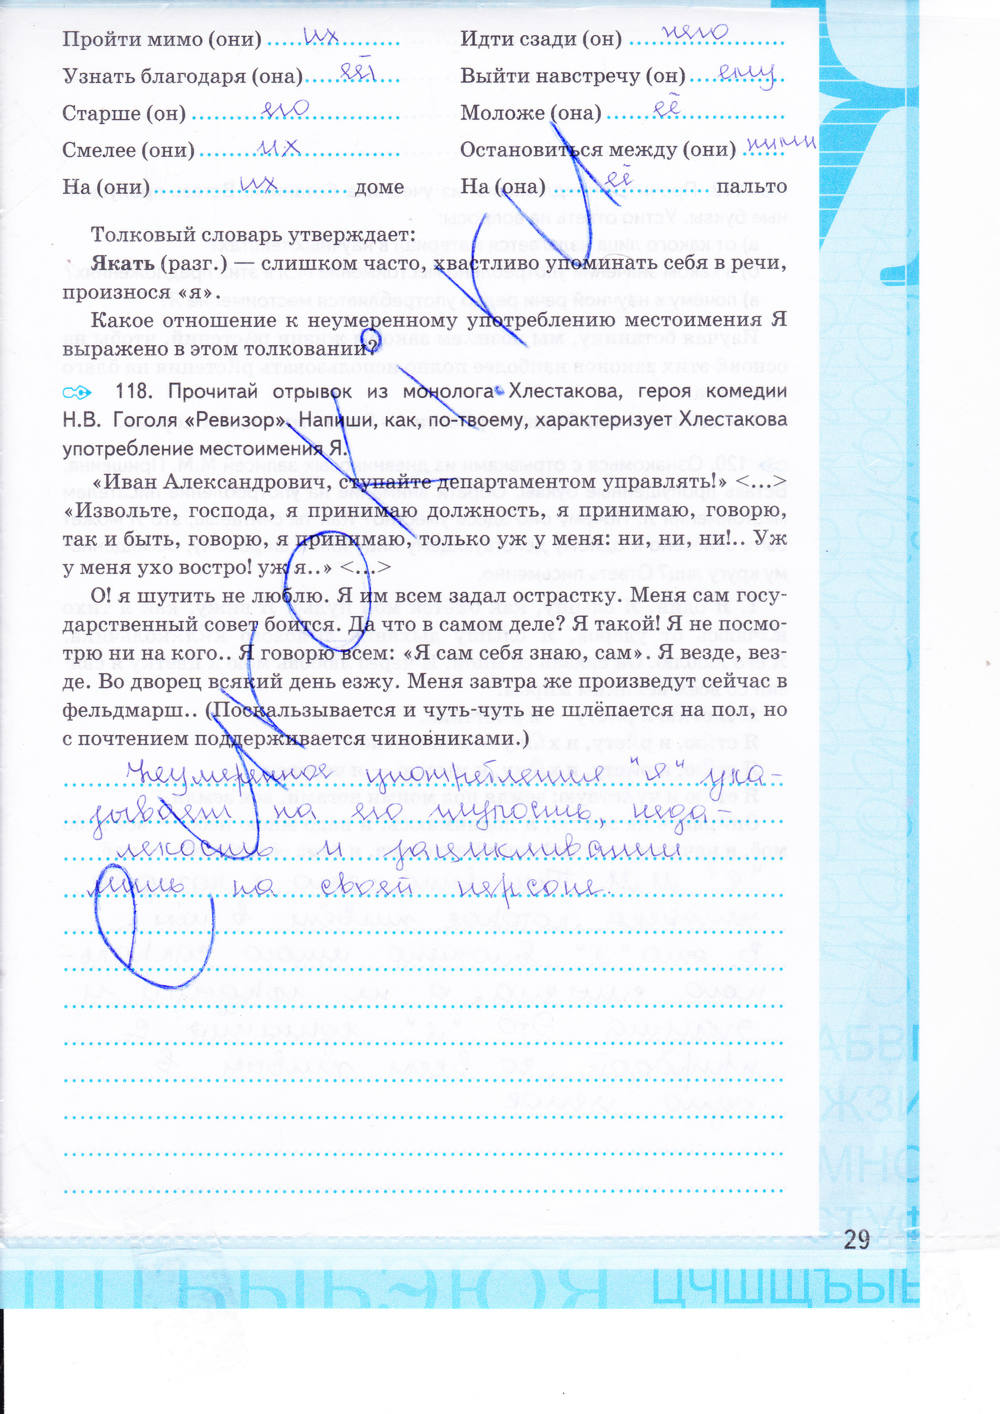 Пройти мимо (они) их Идти сзади (он) него
Узнать благодаря (она) ей Выйти навстречу (он) ему
Старше (он) его Моложе (она) её
Смелее (они) их Остановиться между (они) ними
На (они) их доме На (она) её пальто
Толковый словарь утверждает:
Якать (разг.) — слишком часто, хвастливо упоминать себя в речи,
произнося «я».
Какое отношение к неумеренному употреблению местоимения Я
выражено в этом толковании?
118. Прочитай отрывок из монолога Хлестакова, героя комедии
Н.В. Гоголя «Ревизор». Напиши, как, по-твоему, характеризует Хлестакова
употребление местоимения Я.
«Иван Александрович, ступайте департаментом управлять!» <...>
«Извольте, господа, я принимаю должность, я принимаю, говорю,
так и быть, говорю, я принимаю, только уж у меня: ни, ни, ни!.. Уж
у меня ухо востро! уж я..» <...>
О! я шутить не люблю. Я им всем задал острастку. Меня сам госу-
дарственный совет боится. Да что в самом деле? Я такой! Я не посмо-
трю ни на кого.. Я говорю всем: «Я сам себя знаю, сам». Я везде, вез-
де. Во дворец всякий день езжу. Меня завтра же произведут сейчас в
фельдмарш.. (Поскальзывается и чуть-чуть не шлёпается на пол, но
с почтением поддерживается чиновниками.)
Неумеренное употребления "я" ука-
зывает на его глупость, неда-
лекость и зацикливании
лишь на своей персоне.
29
АБВГ
ЖЗИ
МНО
СТУФ
ЦЧШЩЪЫЬ